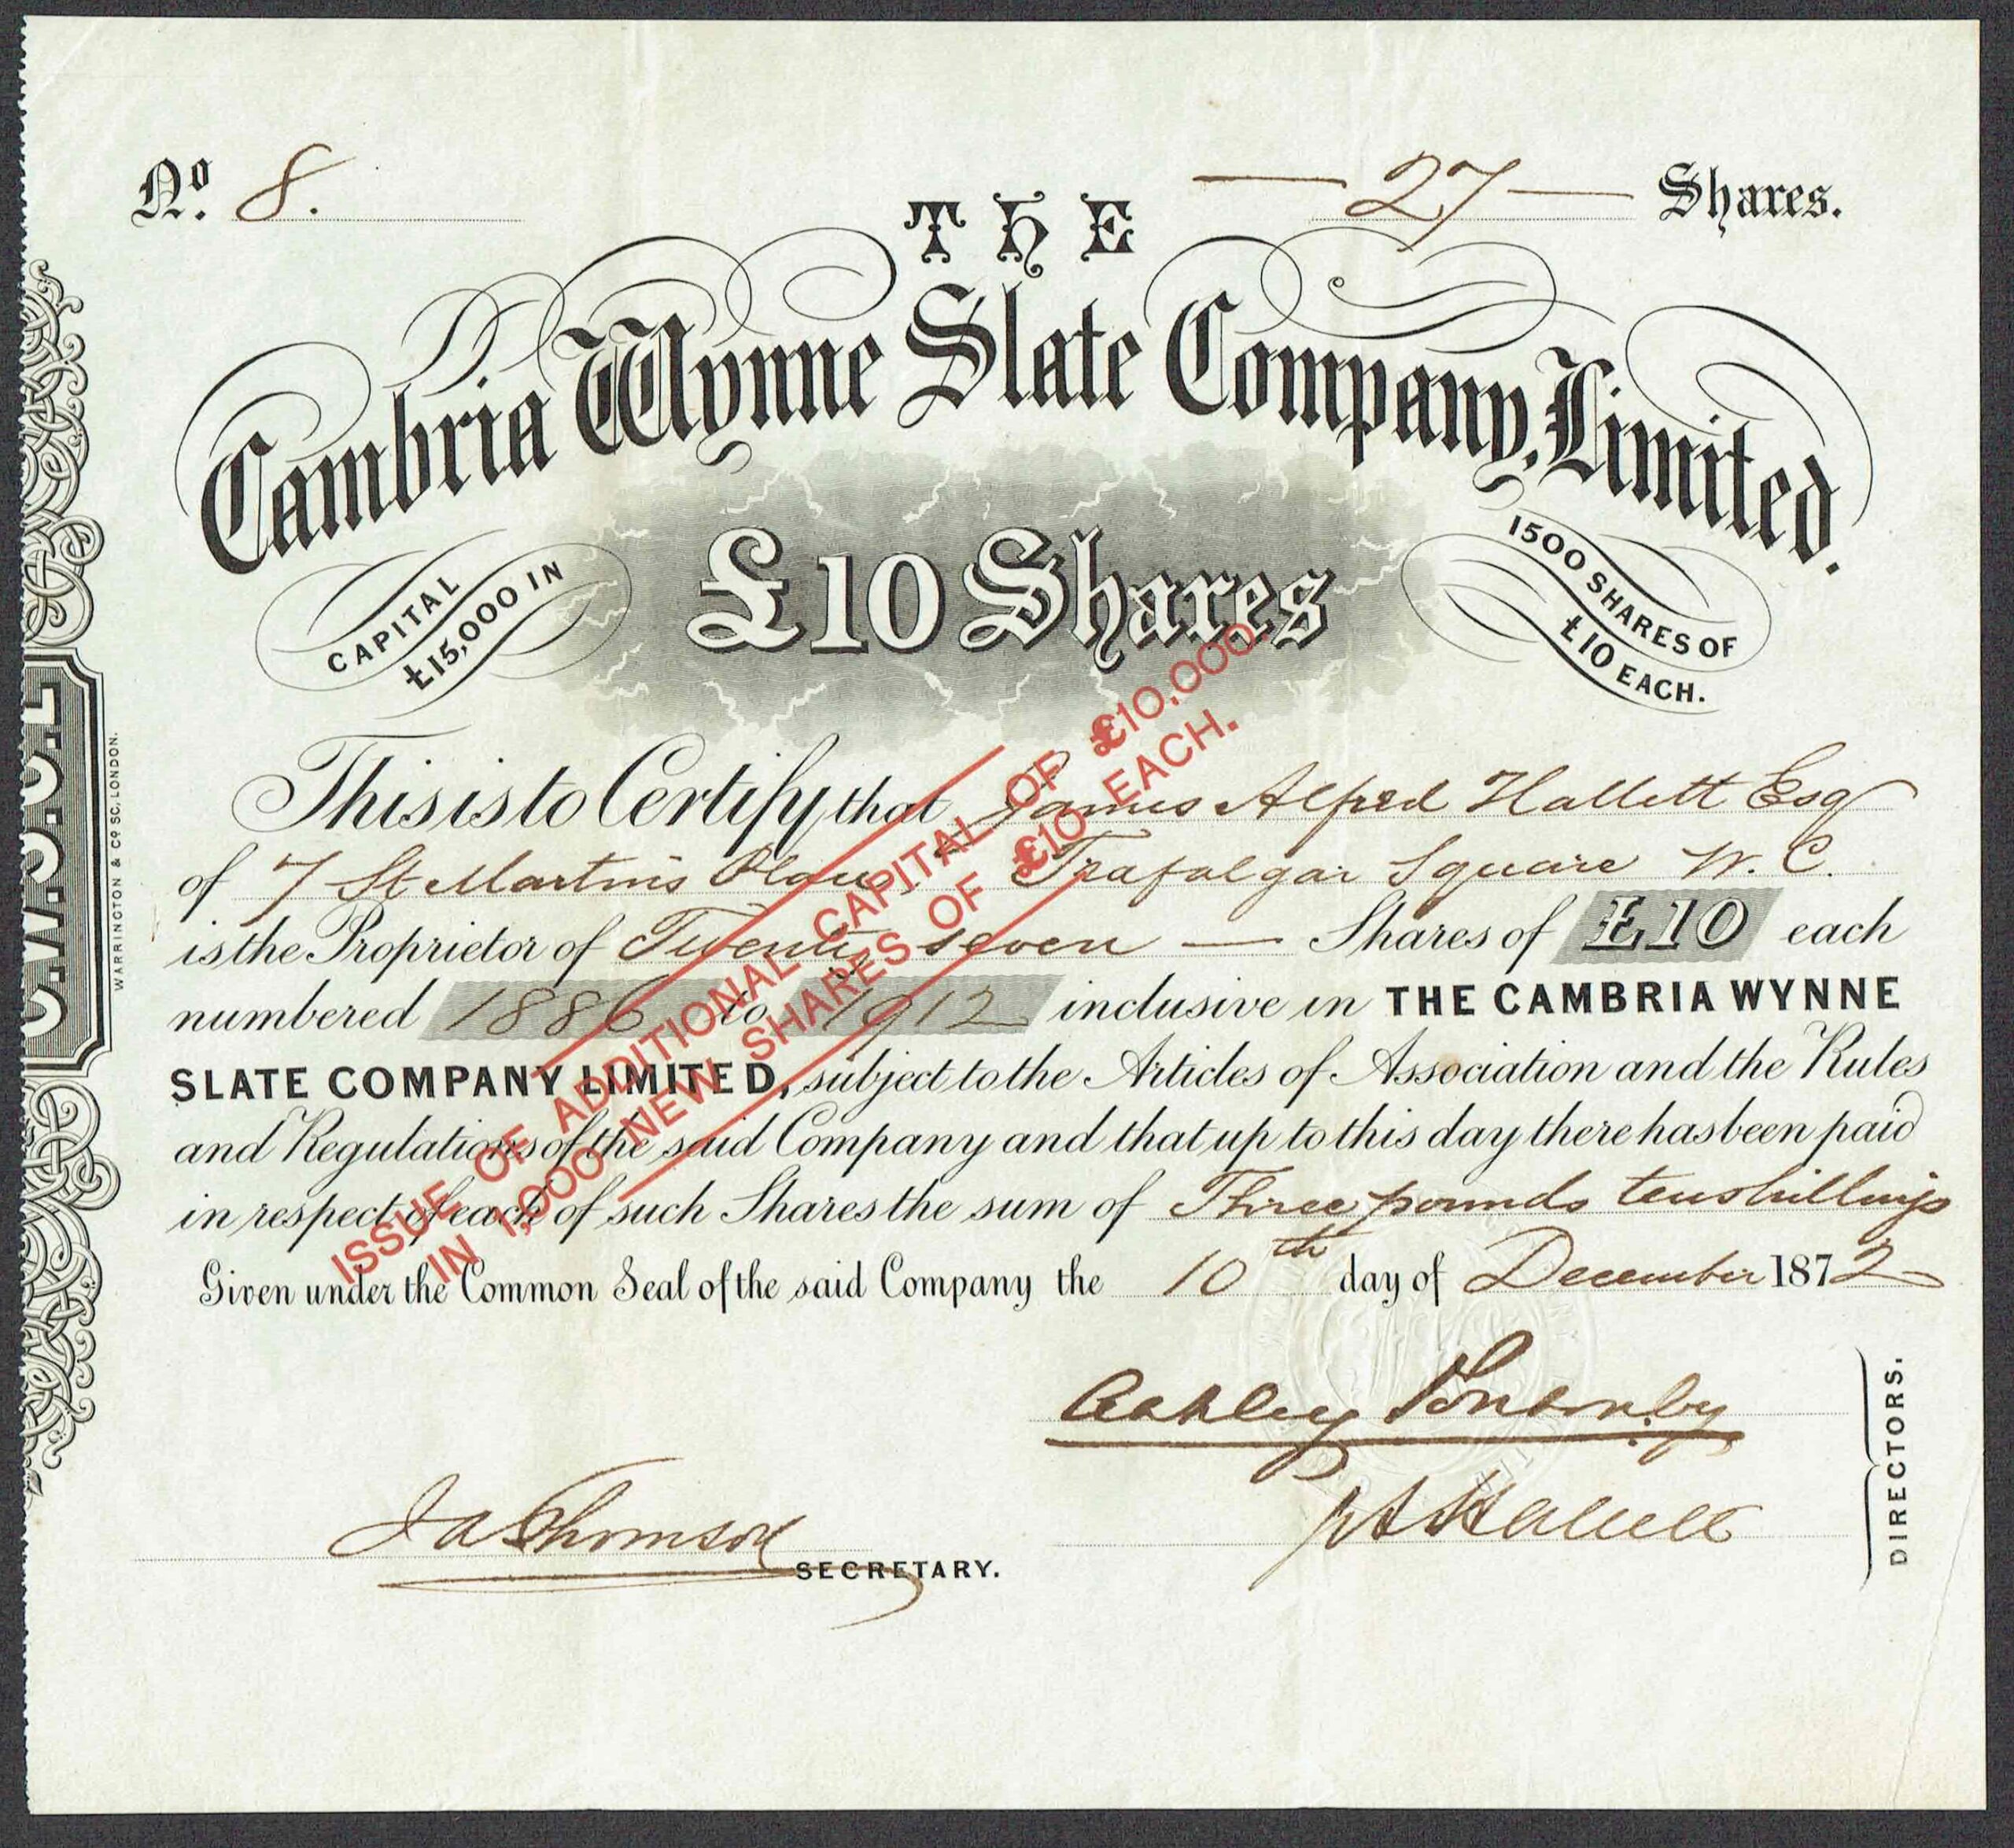 No. 8.
— 27 — Shares.
THE
Cambria Wynne Slate Company, Limited.
CAPITAL
£15,000 IN
£10 Shares
1500 SHARES OF
£10 EACH.
This is to Certify that James Alfred Hallett Esq
of 7 St Martins Place Trafalgar Square W.C.
is the Proprietor of Twenty seven — Shares of £10 each
numbered 1886 to 1912 inclusive in THE CAMBRIA WYNNE
SLATE COMPANY LIMITED, subject to the Articles of Association and the Rules
and Regulations of the said Company and that up to this day there has been paid
in respect of each of such Shares the sum of Three pounds ten shillings
Given under the Common Seal of the said Company the 10th day of December 1872
ISSUE OF ADDITIONAL CAPITAL OF £10,000
IN 1,000 NEW SHARES OF £10 EACH.
Ashley Ponsonby
J A Hallett
DIRECTORS.
J A Thomson
SECRETARY.
C.W.S.C.L
WARRINGTON & CO SC. LONDON.